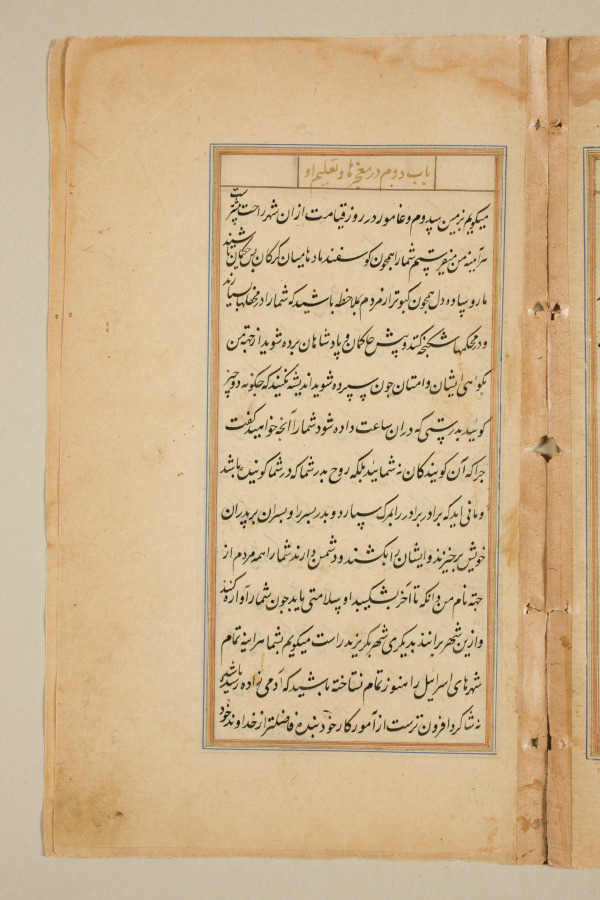 باب دوم در معجزها و تعلیم او
میکویم بزمین سپدوم و غامور در روز قیامت از ان شهر راحت بیشترست
هرآینه من میفرستیم شما را همچون کوسفند مادها میان کرکان پس حکمان باشید
ماروساده دل همچون کبوتر از مردم ملاحظه باشید که شما را در محفلها سپارند
و در محکمها شکنجه کنند و پیش حاکمان و پادشاهان برده شوید از جهة من
بکواهی ایشان و امتان چون سپرده شوید اندیشه نکنید که چکونه و چه چیز
کویید بدرستی که در ان ساعت داده شود شما را آنچه خواهید کفت
چرا که آن کویندکان نه شمایید بلکه روح پدر شما که در شما کوینده باشد
و مانی اید که برادر برادر را بمرک سپارد و پدر پسر را و پسران بر پدران
خویش برخیزند و ایشان را بکشند و دشمن دارند شما را همه مردم از
جهة نام من و انکه تا آخر بشکیبد او بسلامتی یابد چون شما را آواره کنند
و ازین شهر برانند بدیکری شهر بکریزید راست میکویم بشما هراینه تمام
شهرهای اسراییل را هنوز تمام نشناخته باشید که آدمی زاده رسیده باشد
نه شاکرد افزون ترست از آموزکار خود نه بنده فاضلتر از خداوند خود